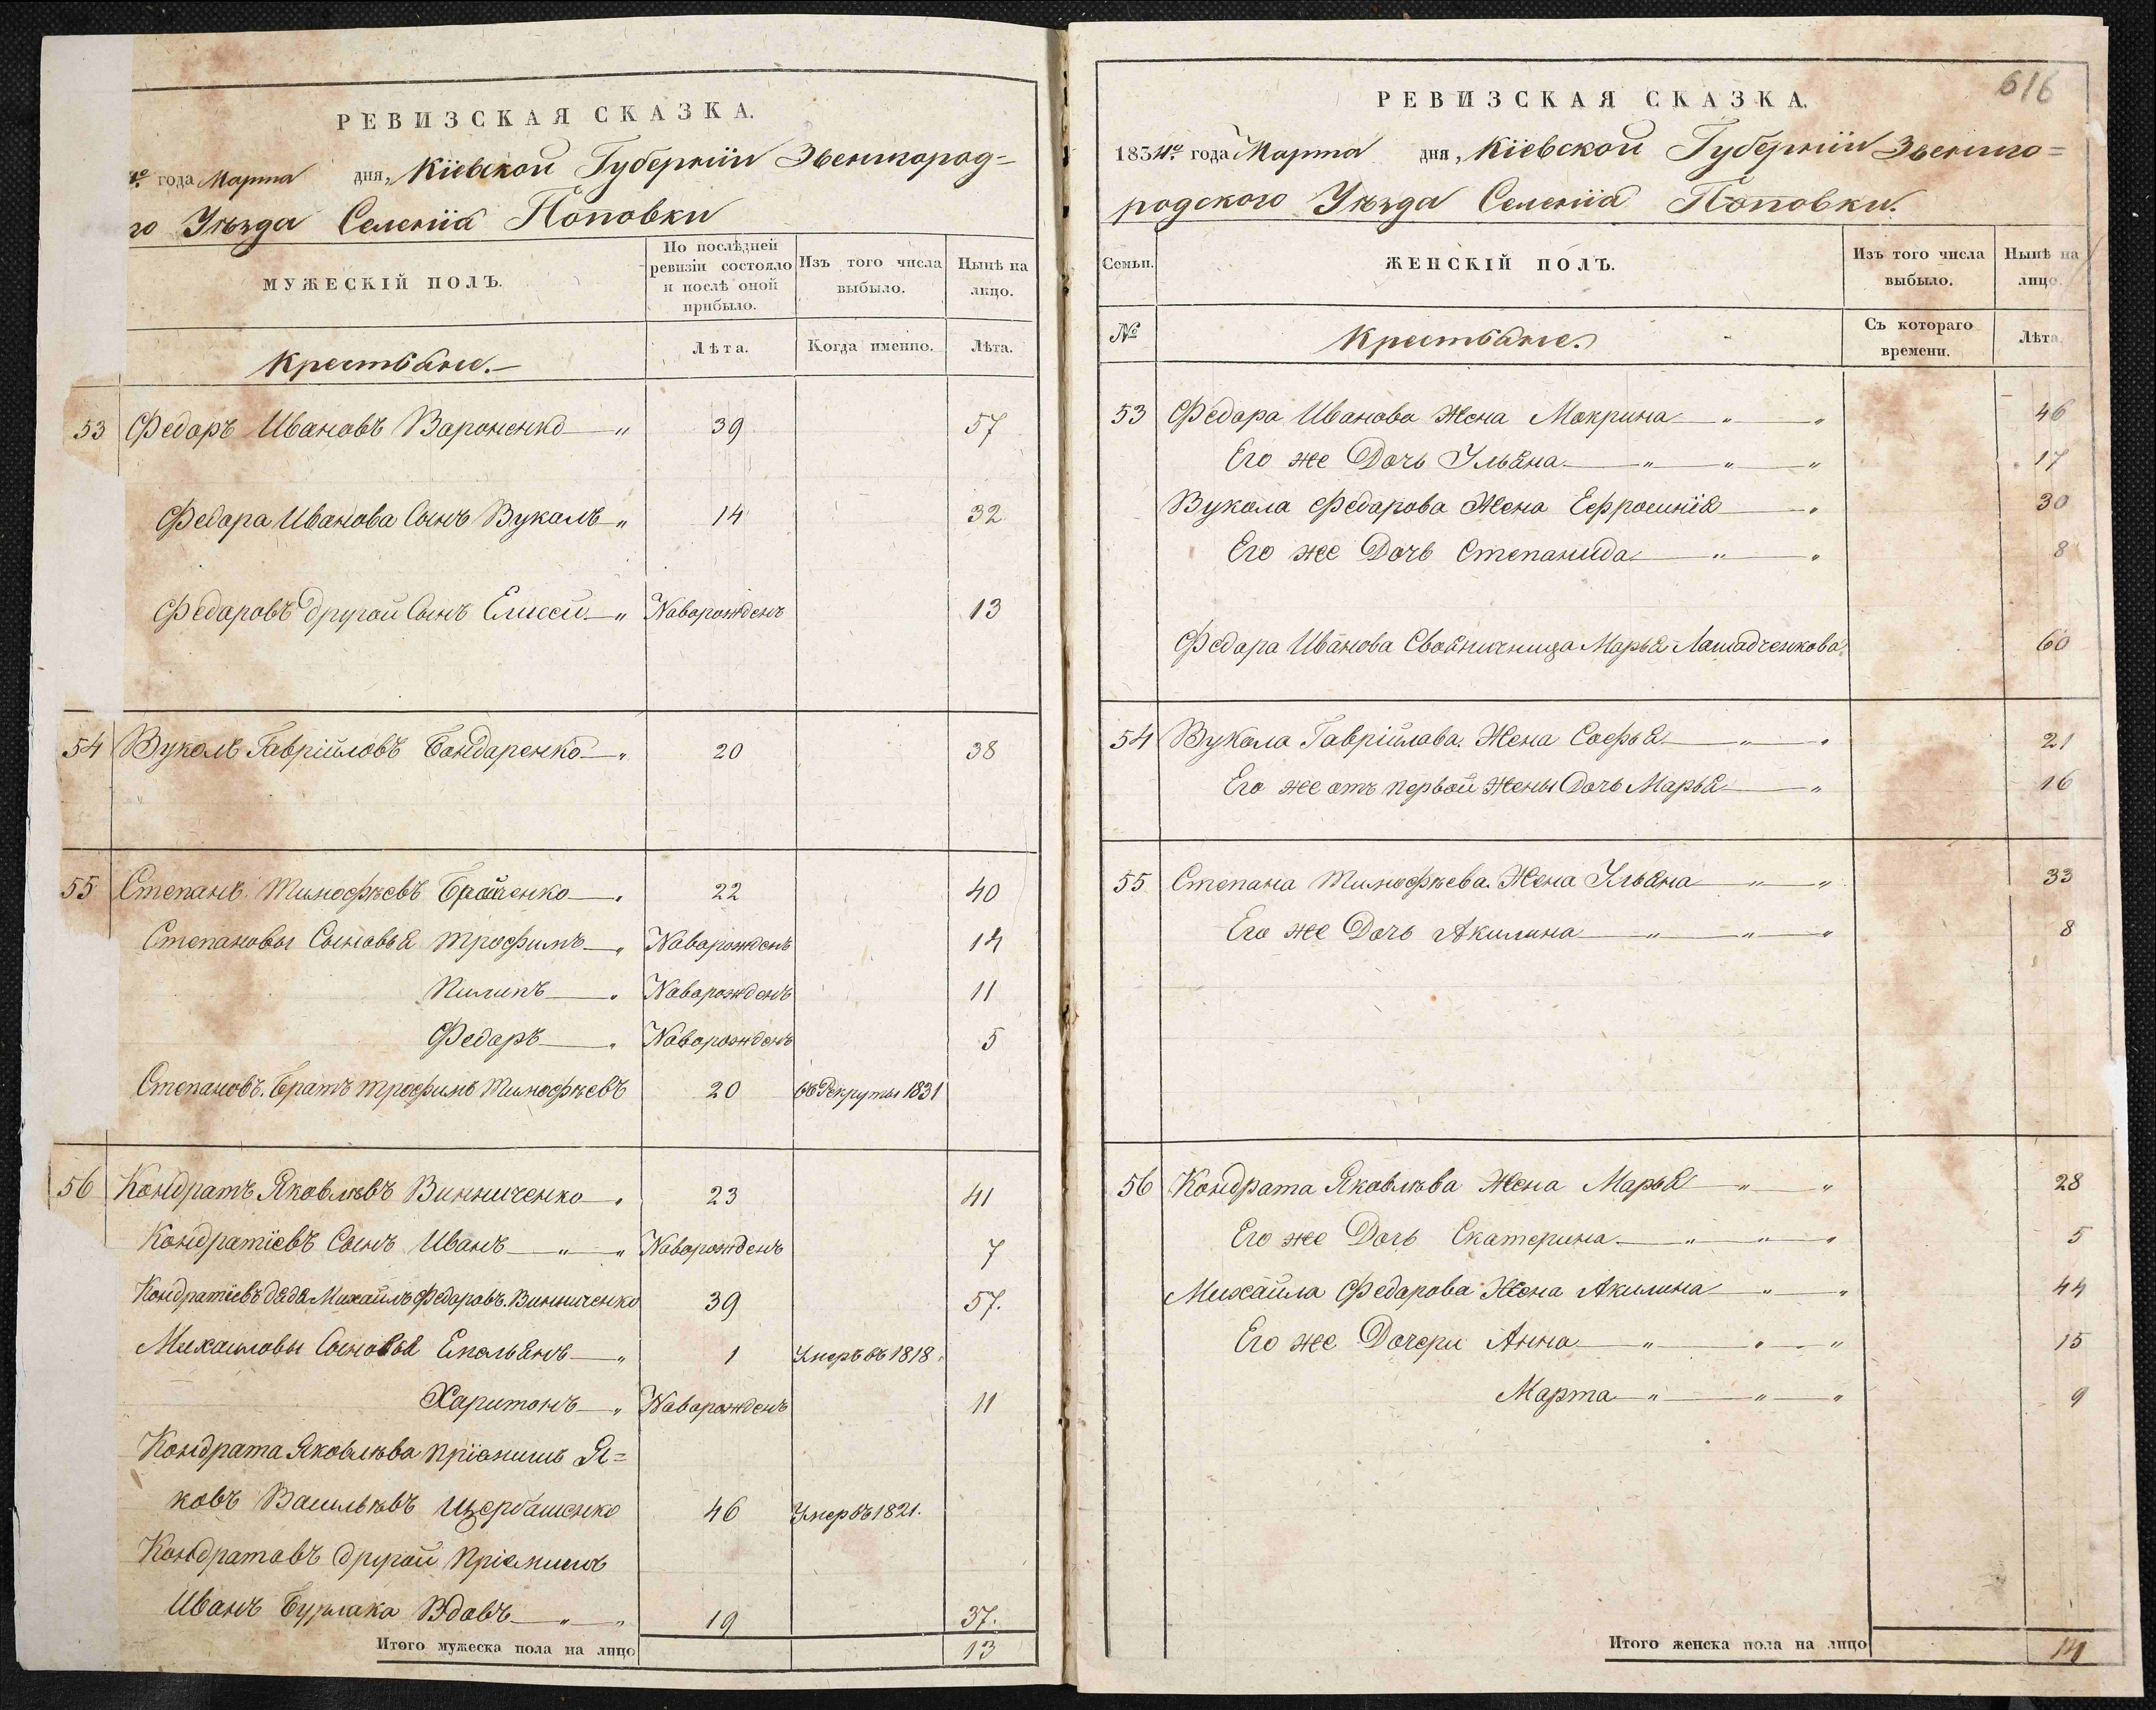 РЕВИЗСКАЯ СКАЗКА.
года Марта дня, Кіевской Губерніи Звенигород=
го Уѣзда Селенія Поповки
МУЖЕСКІЙ ПОЛЪ.
По послѣдней ревизіи состояло и послѣ оной прибыло.
Изъ того числа выбыло.
Нынѣ на лицо.
Крестьяне.
Лѣта.
Когда именно.
Лѣта.
53 Федоръ Ивановъ Вароненко 39 57
Федора Иванова Сынъ Вуколъ 14 32
Федоровъ другой Сынъ Елисей Наворожденъ 13
54 Вуколъ Гавріиловъ Бондаренко 20 38
55 Степанъ Тимофѣевъ 22 40
Степановы Сыновья Трофимъ Наворожденъ 14
Пилипъ Наворожденъ 11
Федаръ Наворожденъ 5
Степановъ Братъ Трофимъ Тимофѣевъ 20 въ Рекруты 1831
56 Кондратъ Яковлѣвъ Винниченко 23 41
Кондратіевъ Сынъ Иванъ Наворожденъ 7
Кондратіевъ дядя Михайлъ Федаровъ Винниченко 39 57.
Михаиловы Сыновья Емельянъ 1 Умеръ въ 1818
Харитонъ Наворожденъ 11
Кондрата Яковлѣва пріемишъ Я=
ковъ Васильѣвъ Щербашенко 46 Умеръ въ 1821.
Кондратовъ другой пріемишъ
Иванъ Бурлака Вдовъ 19 37.
Итого мужеска пола на лицо 13
616
РЕВИЗСКАЯ СКАЗКА.
1834го года Марта дня, Кіевской Губерніи Звениго=
родского Уѣзда Селенія Поповки.
Семьи.
ЖЕНСКІЙ ПОЛЪ.
Изъ того числа выбыло.
Нынѣ на лицо.
№
Крестьяне.
Съ котораго времени.
Лѣта.
53 Федора Иванова Жена Макрина 46
Его же Дочь Ульяна 17
Вукола Федарова Жена Ефросинія 30
Его же Дочь Степанида 8
Федора Иванова Своячница Марья Лашадченкова 60
54 Вукола Гавріилова Жена Софья 21
Его же отъ первой Жены Дочь Марья 16
55 Степана Тимофѣева Жена Ульяна 33
Его же Дочь Акилина 8
56 Кондрата Яковлѣва Жена Марья 28
Его же Дочь Екатерина 5
Михайла Федарова Жена Акилина 44
Его же Дочери Анна 15
Марта 9
Итого женска пола на лицо 14